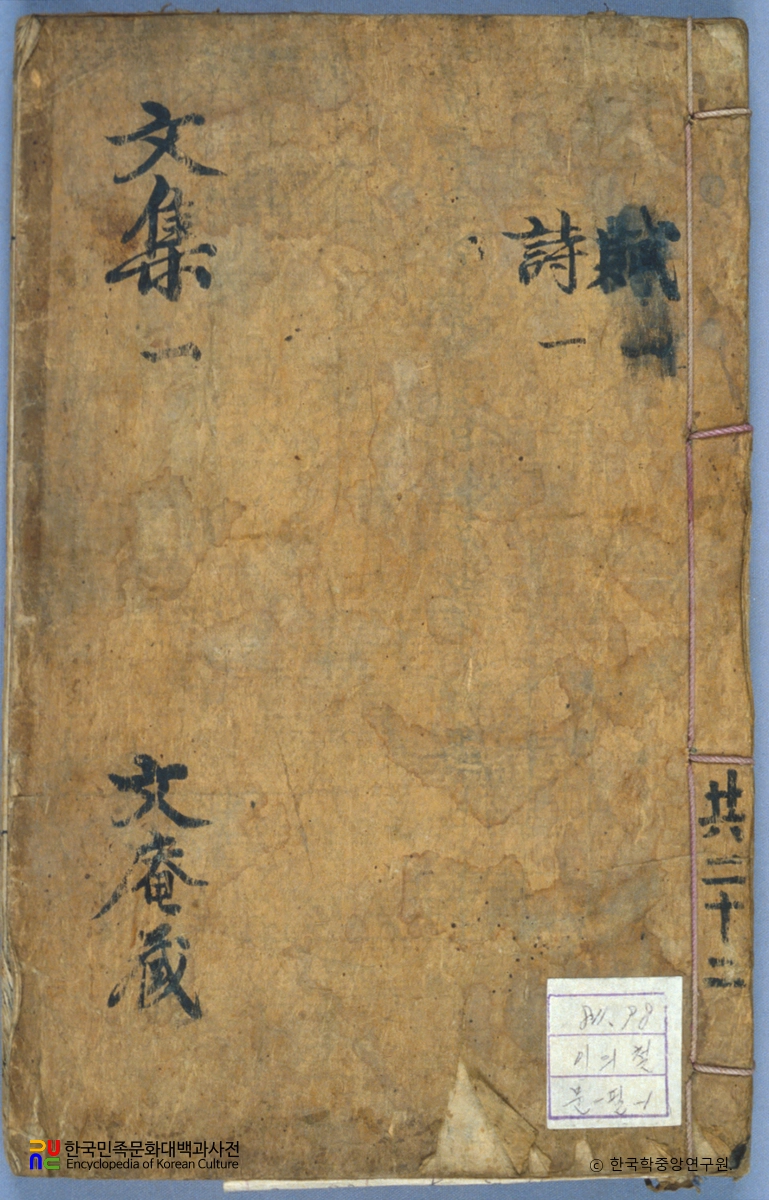 賦一
詩一
文集一
文庵藏
共二十二
811.98
이의철
문-필-1
한국민족문화대백과사전
Encyclopedia of Korean Culture
ⓒ 한국학중앙연구원